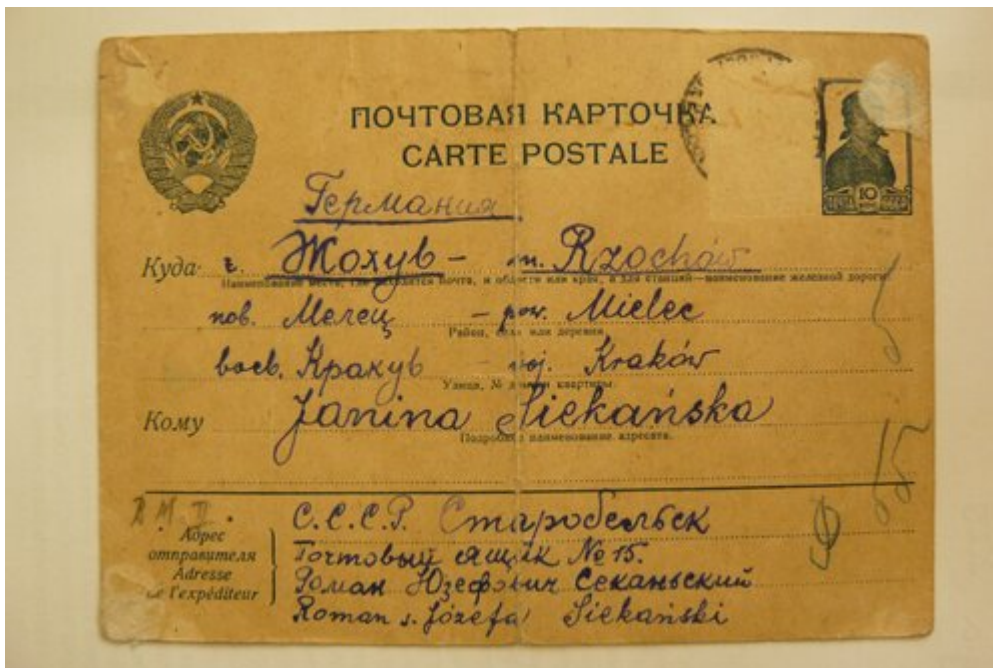 ПОЧТОВАЯ КАРТОЧКА
CARTE POSTALE
10
Германия
Куда г. Жохув – m. Rzochów
Наименование места, где находится почта, и области или края, а для станций—наименование железной дороги
пов. Мелец – pow. Mielec
Район, села или деревня
воев. Крахув – woj. Kraków
Улица, № дома и квартиры.
Кому Janina Siekańska
Подробное наименование адресата.
С.С.С.Р. Старобельск
Адрес отправителя
Adresse de l'expéditeur
Почтовый ящик № 15.
Роман Юзефович Секаньский
Roman s. Józefa Siekański